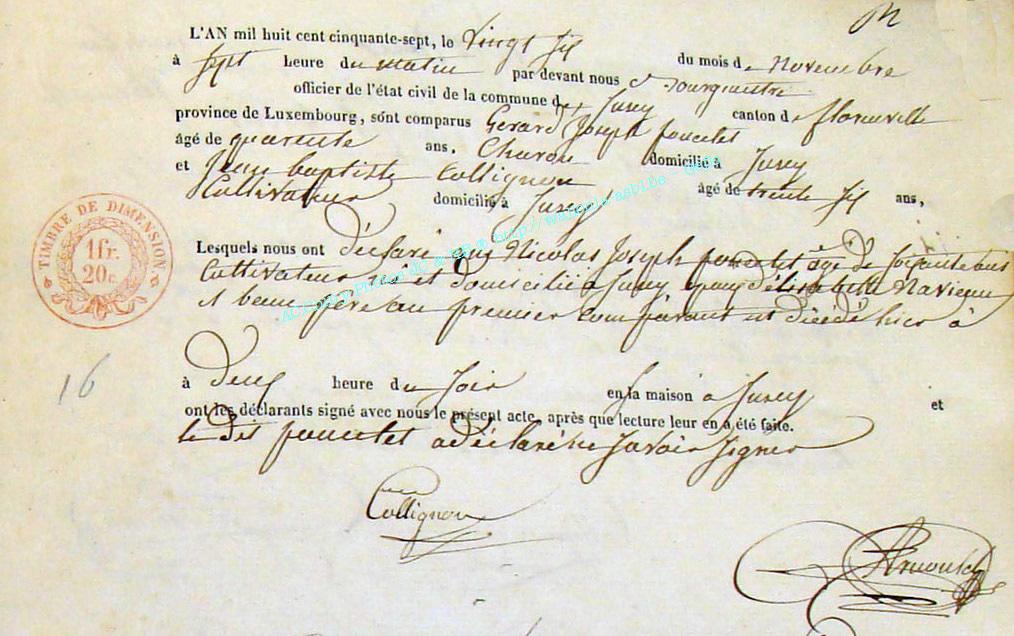 L'AN mil huit cent cinquante-sept, le Vingt six du mois de novembre
à sept heure du matin par devant nous Bourguestre
officier de l'état civil de la commune de Jusey canton de florenville
province de Luxembourg, sont comparus Gerard Joseph poncelet
âgé de quarente ans, Charon domicilié à Jusey
et Jean baptiste Collignon âgé de trente six ans,
Cultivateur domicilié à Jusey
Lesquels nous ont déclaré que Nicolas Joseph poncelet âgé de soixante ans
Cultivateur né et domicilié à Jusey epoux d'élisabeth
et beau père au premier Comparant est décédé hier à
à Deux heure du Soir en la maison à Jusey et
ont les déclarants signé avec nous le présent acte, après que lecture leur en a été faite.
le dit poncelet a déclaré ne Savoir Signer
Collignon
TIMBRE DE DIMENSION
1 fr.
20 c.
16